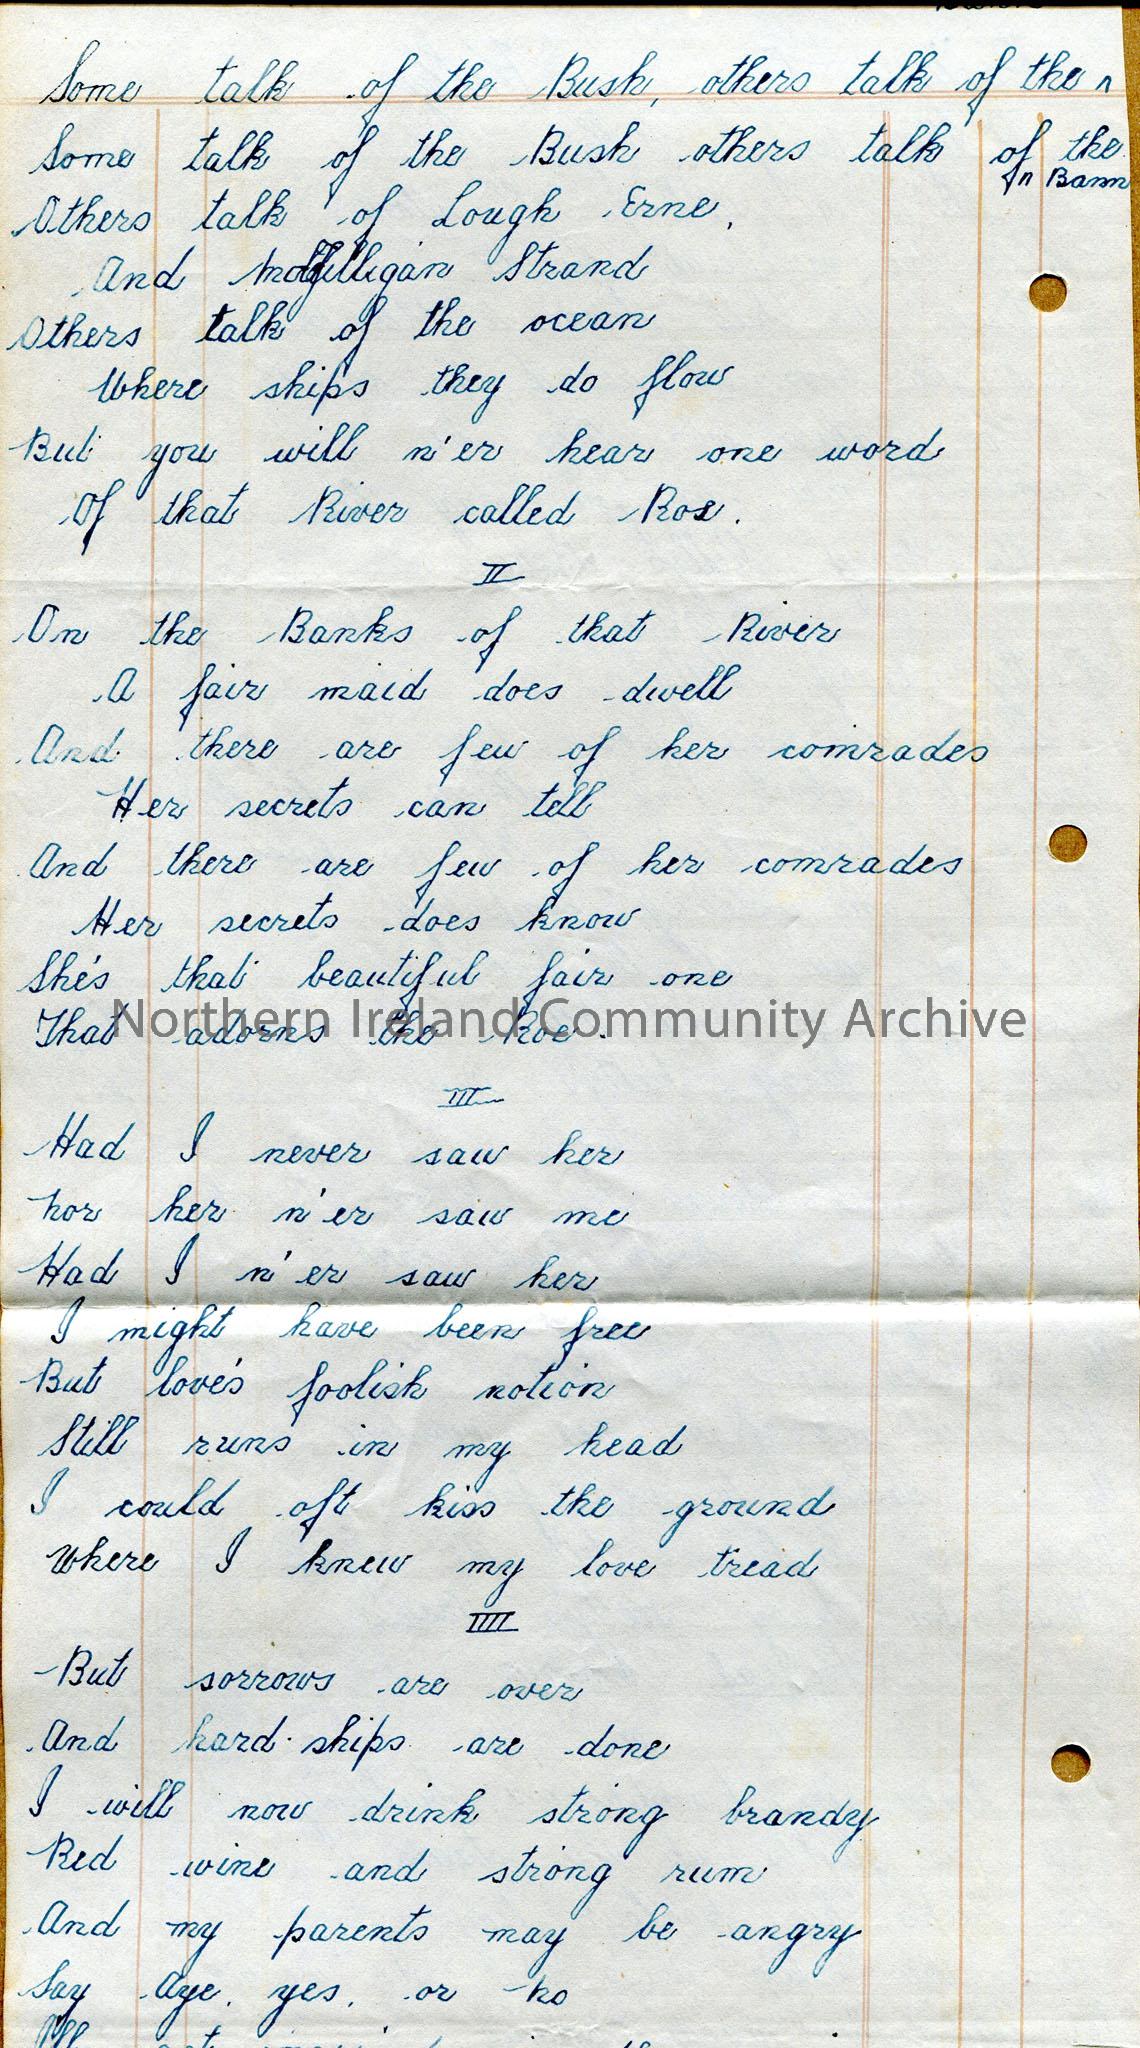 Some talk of the Bush, others talk of the
Some talk of the Bush others talk of the
Bann
Others talk of Lough Erne,
And Magilligan Strand
Others talk of the ocean
Where ships they do flow
But you will n'er hear one word
Of that River called Roe.
II
On the Banks of that River
A fair maid does dwell
And there are few of her comrades
Her secrets can tell
And there are few of her comrades
Her secrets does know
She's that beautiful fair one
That adorns the Roe.
Northern Ireland Community Archive
III
Had I never saw her
nor her n'er saw me
Had I n'er saw her
I might have been free
But love's foolish notion
Still runs in my head
I could oft kiss the ground
Where I knew my love tread
IIII
But sorrows are over
And hard ships are done
I will now drink strong brandy
Red wine and strong rum
And my parents may be angry
Say Aye, yes, or no